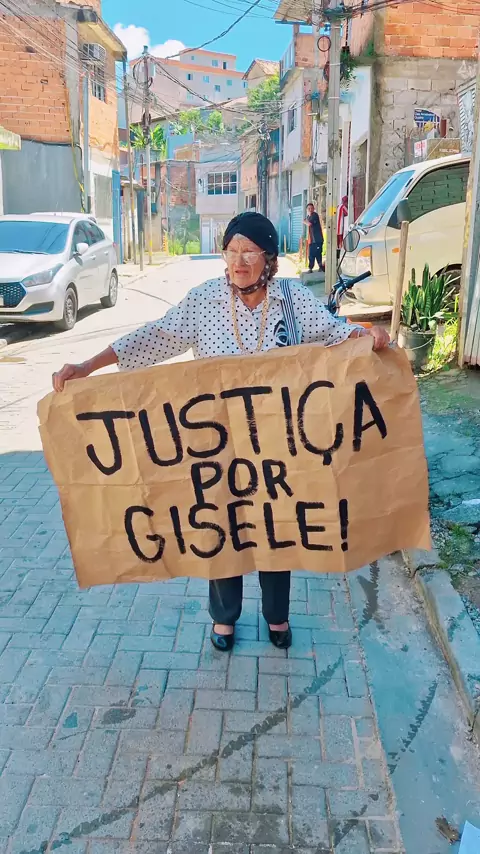 JUSTIÇA
POR
GISELE!